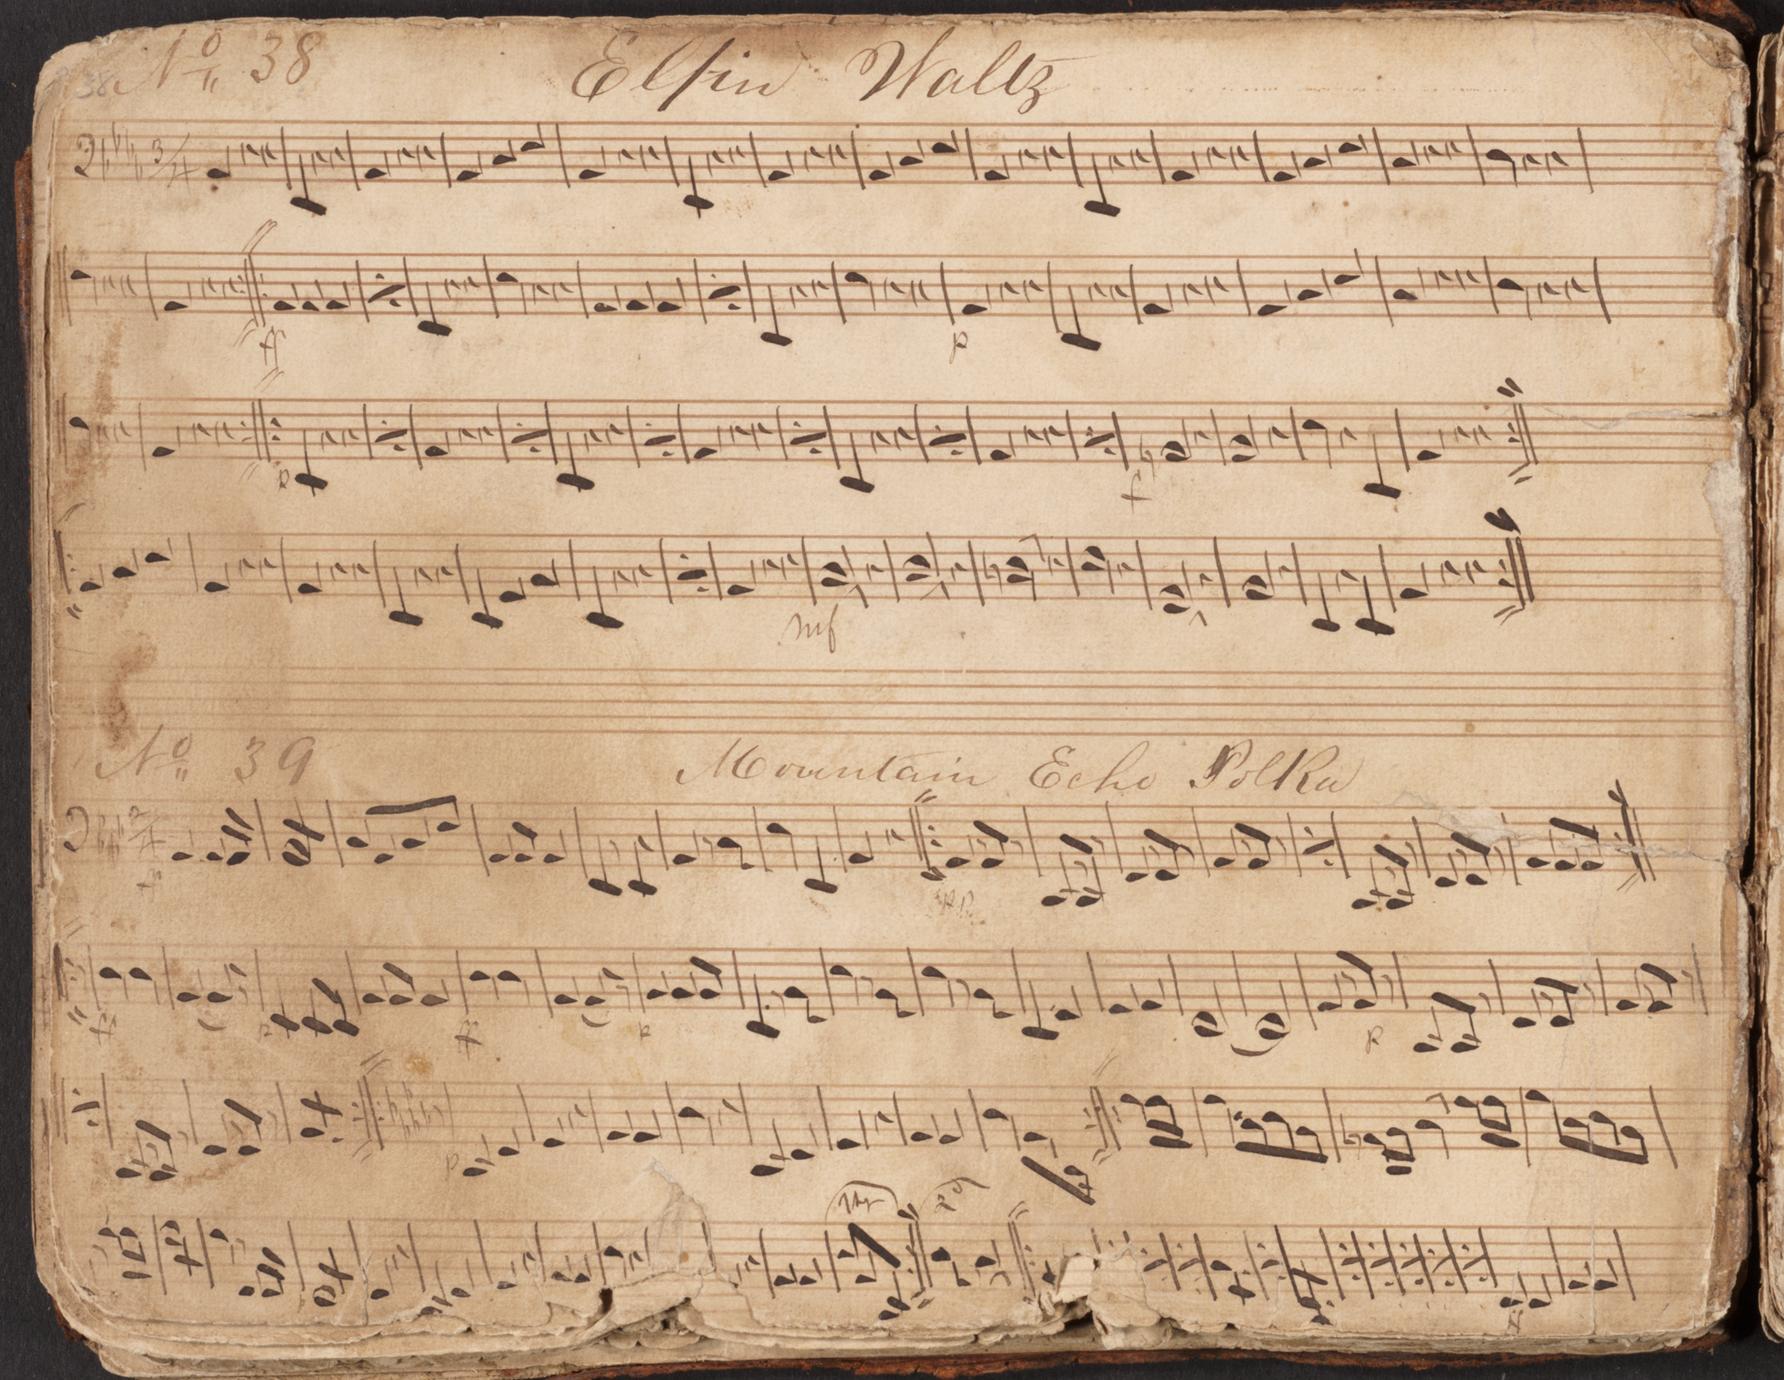 38 No 38 Elfin Waltz
3/4
ff p
p f
mf
No 39 Mountain Echo Polka
2/4
p
p